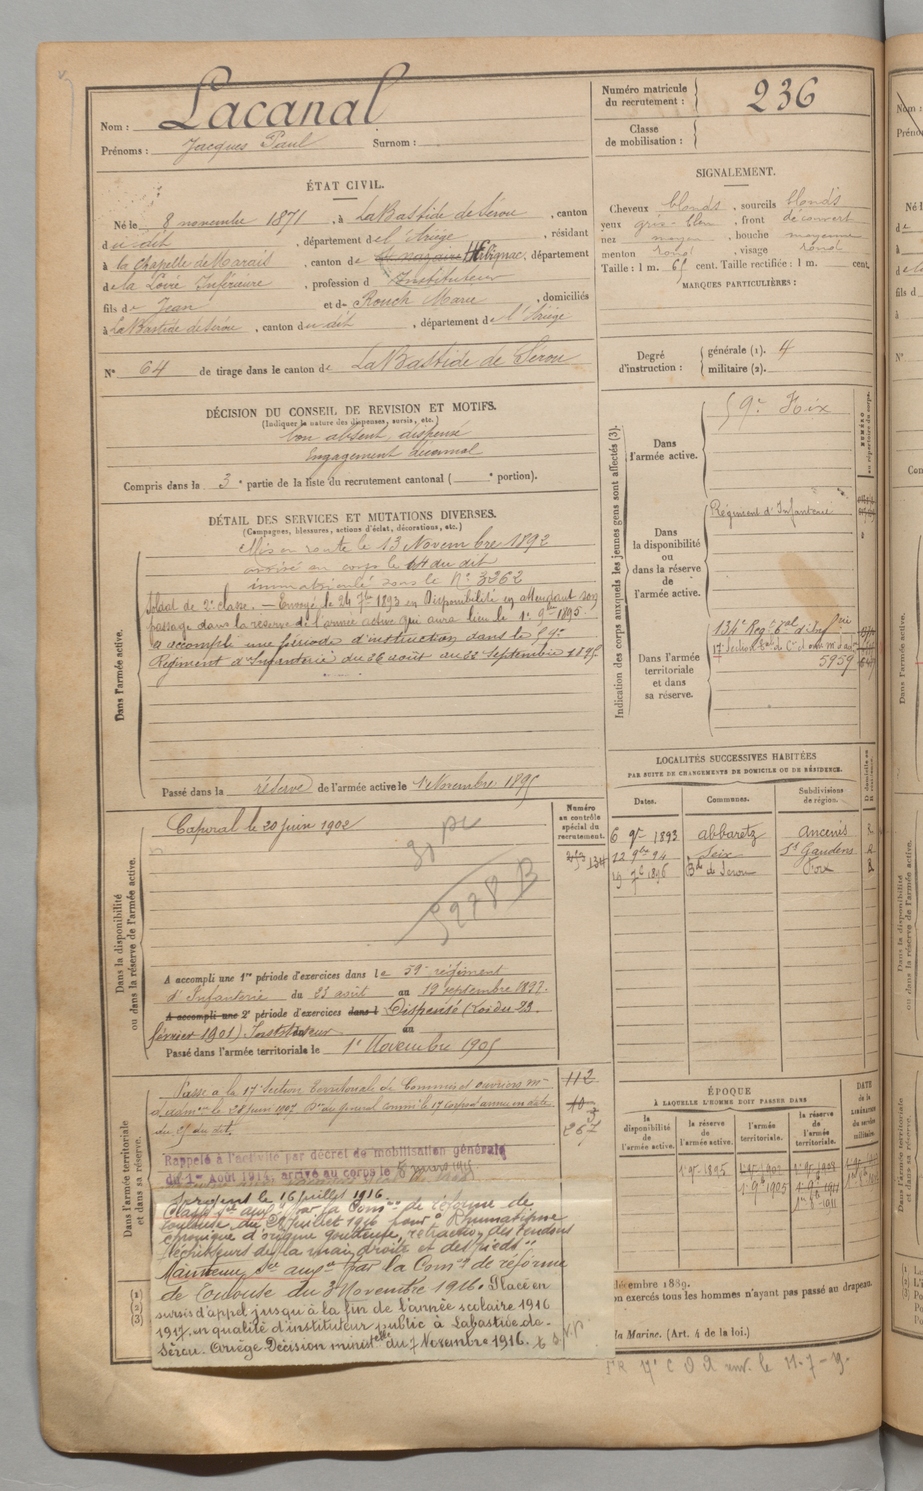 Nom : Lacanal
Prénoms : Jacques Paul Surnom :
Numéro matricule du recrutement : 236
Classe de mobilisation :
ÉTAT CIVIL.
Né le 8 novembre 1871, à LaBastide de Sérou, canton
dudit, département de l'Ariège, résidant
à la Chapelle des Marais, canton de St Nazaire Herbignac, département
de la Loire Inférieure, profession d'Instituteur
fils de Jean et de Rouch Marie, domiciliés
à LaBastide de Sérou, canton dudit, département de l'Ariège
N° 64 de tirage dans le canton de LaBastide de Sérou
SIGNALEMENT.
Cheveux blonds, sourcils blonds
yeux gris-bleu, front découvert
nez moyen, bouche moyenne
menton rond, visage rond
Taille : 1 m. 65 cent. Taille rectifiée : 1 m. cent.
MARQUES PARTICULIÈRES :
Degré d'instruction : générale (1). 4
militaire (2).
DÉCISION DU CONSEIL DE REVISION ET MOTIFS.
(Indiquer la nature des dispenses, sursis, etc.)
bon absent, dispensé
Engagement décennal
Compris dans la 3e partie de la liste du recrutement cantonal ( e portion).
DÉTAIL DES SERVICES ET MUTATIONS DIVERSES.
(Campagnes, blessures, actions d'éclat, décorations, etc.)
Dans l'armée active.
Mis en route le 13 Novembre 1892
arrivé au corps le 14 du dit
immatriculé sous le N° 3362
Soldat de 2e classe. — Envoyé le 24 7bre 1893 en Disponibilité en attendant son
passage dans la réserve de l'armée active qui aura lieu le 1er 9bre 1895.
a accompli une période d'instruction dans le 59e
Régiment d'Infanterie du 26 août au 22 septembre 1895
Passé dans la réserve de l'armée active le 1 Novembre 1895
Indication des corps auxquels les jeunes gens sont affectés (3).
Dans l'armée active.
59e Foix
Dans la disponibilité ou dans la réserve de l'armée active.
Régiment d'Infanterie
Dans l'armée territoriale et dans sa réserve.
134e Régt tal d'Infrie
5959
LOCALITÉS SUCCESSIVES HABITÉES
PAR SUITE DE CHANGEMENTS DE DOMICILE OU DE RÉSIDENCE.
Dates. Communes. Subdivisions de région.
6 9bre 1893 abbaretz Ancenis R
12 9bre 94 Seix St Gaudens R
19 7bre 1896 Bde de Sérou Foix R
Dans la disponibilité ou dans la réserve de l'armée active.
Numéro au contrôle spécial du recrutement.
Caporal le 20 juin 1902
5978 B
A accompli une 1re période d'exercices dans le 59e régiment
d'Infanterie du 23 août au 19 septembre 1897.
A accompli une 2e période d'exercices dans l Dispensé (Loi du 23
février 1901) Instituteur au
Passé dans l'armée territoriale le 1er Novembre 1905
Dans l'armée territoriale et dans sa réserve.
Passé à la 17e Section territoriale de Commis et ouvriers mres
112
267
Rappelé à l'activité par décret de mobilisation générale
du 1er août 1914, arrivé au corps le 6 mars 1915
Sergent le 16 juillet 1916
Classé Sce auxre par la Comon de réforme de
Toulouse du juillet 1916 pour "Rhumatisme
chronique d'origine goutteuse, rétraction des tendons
fléchisseurs de la main droite et des pieds"
Maintenu Sce auxre par la Comon de réforme
de Toulouse du 3 Novembre 1916. Placé en
sursis d'appel jusqu'à la fin de l'année scolaire 1916
1917, en qualité d'instituteur public à Labastide-de-
Sérou. Ariège. Décision ministelle du 7 Novembre 1916.
ÉPOQUE
À LAQUELLE L'HOMME DOIT PASSER DANS
la disponibilité de l'armée active. la réserve de l'armée active. l'armée territoriale. la réserve de l'armée territoriale.
DATE de la LIBÉRATION du service militaire.
1er 9bre 1895
1er 9bre 1905
décembre 1889.
on exercés tous les hommes n'ayant pas passé au drapeau.
la Marine. (Art. 4 de la loi.)